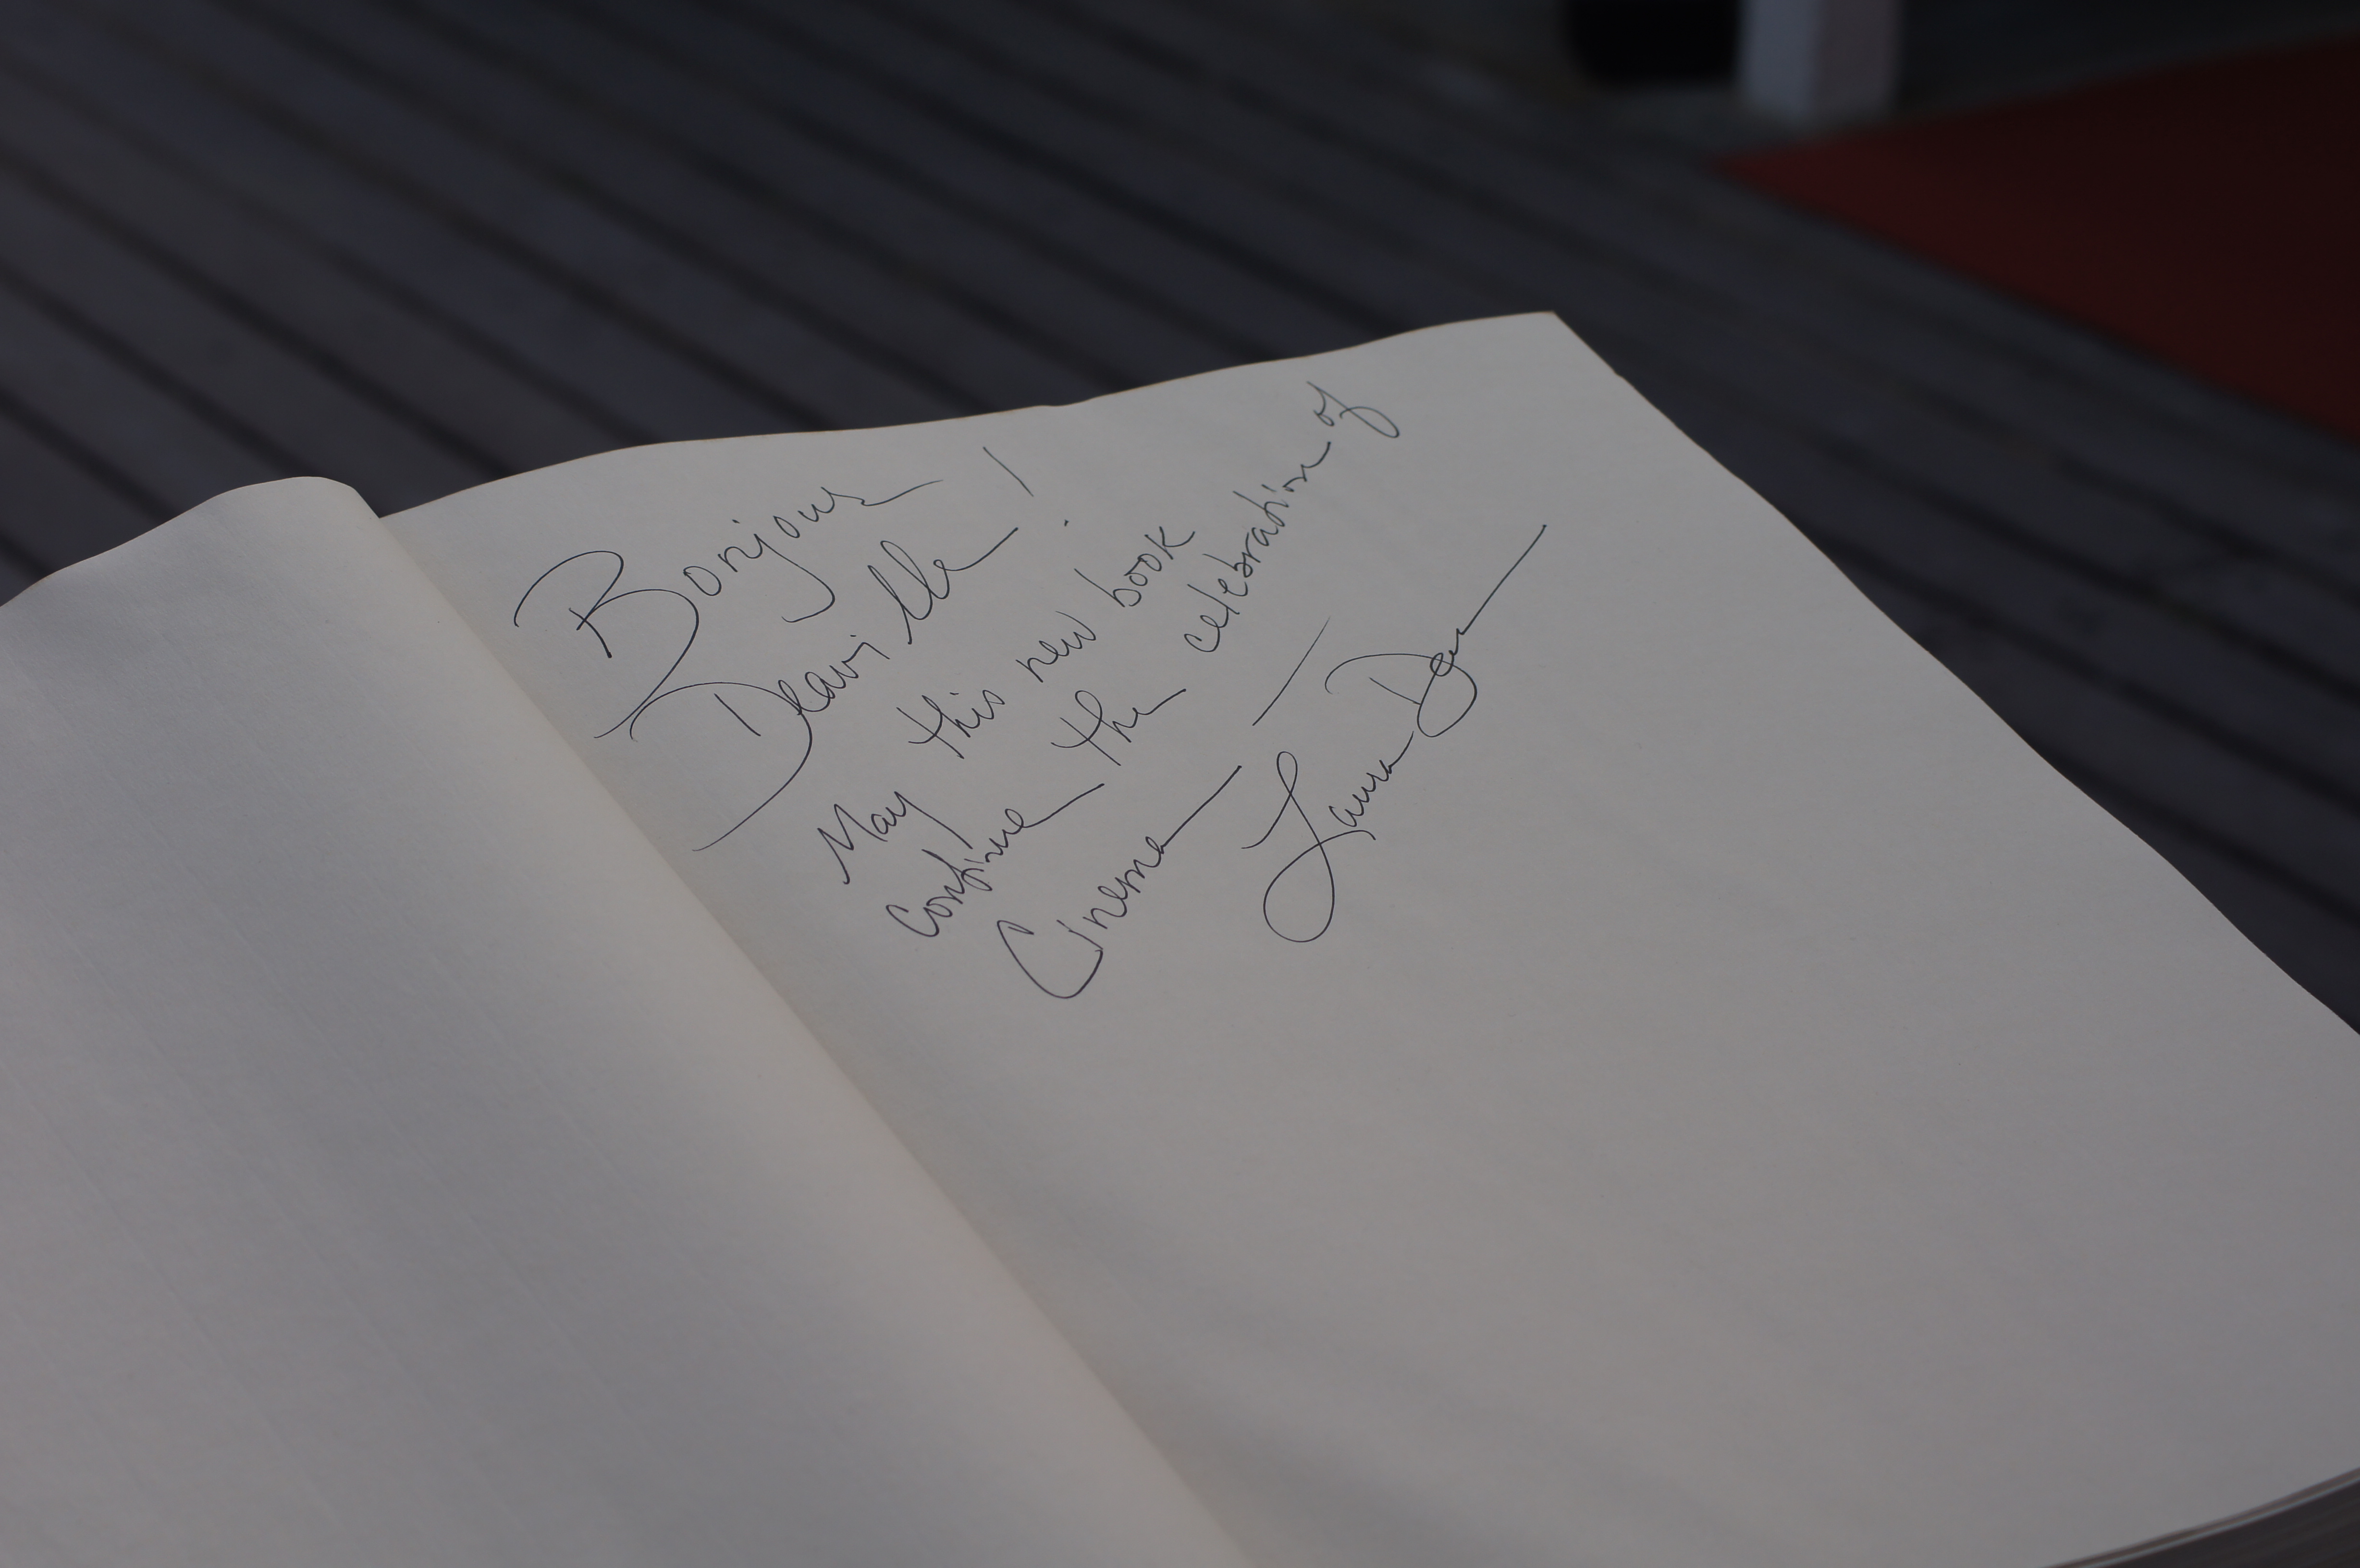 Bonjour
Deauville !
May this new book
continue the celebration of
Cinema
Laura Dern